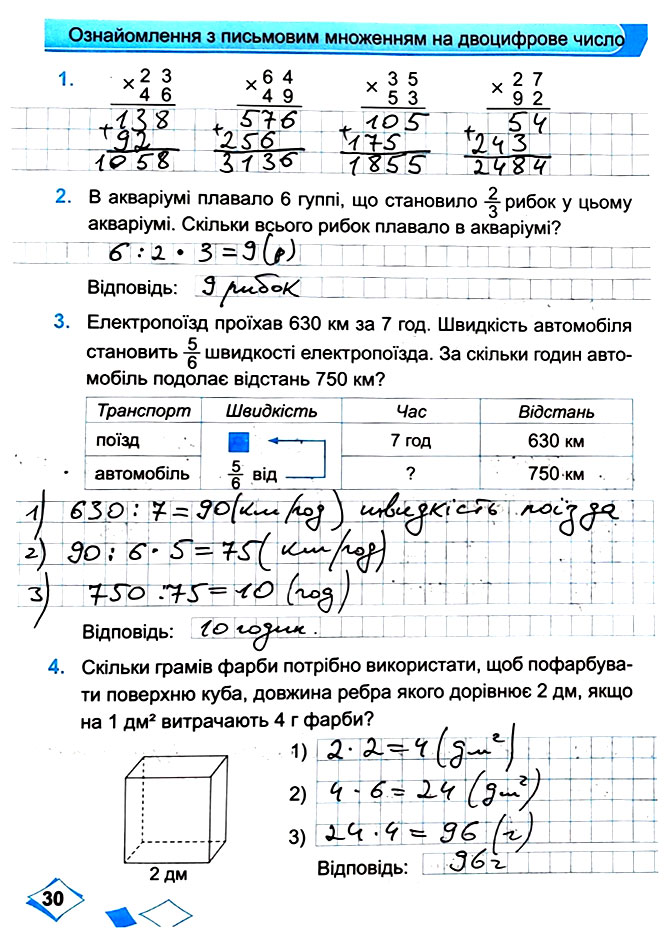 Ознайомлення з письмовим множенням на двоцифрове число
1. × 2 3 × 6 4 × 3 5 × 2 7
4 6 4 9 5 3 9 2
138 576 105 54
+ 92 + 256 + 175 + 243
1058 3136 1855 2484
2. В акваріумі плавало 6 гуппі, що становило 2/3 рибок у цьому
акваріумі. Скільки всього рибок плавало в акваріумі?
6 : 2 · 3 = 9 (р)
Відповідь: 9 рибок
3. Електропоїзд проїхав 630 км за 7 год. Швидкість автомобіля
становить 5/6 швидкості електропоїзда. За скільки годин авто-
мобіль подолає відстань 750 км?
Транспорт Швидкість Час Відстань
поїзд 7 год 630 км
автомобіль 5/6 від ? 750 км
1) 630 : 7 = 90 (км/год) швидкість поїзда
2) 90 : 6 · 5 = 75 (км/год)
3) 750 : 75 = 10 (год)
Відповідь: 10 годин.
4. Скільки грамів фарби потрібно використати, щоб пофарбува-
ти поверхню куба, довжина ребра якого дорівнює 2 дм, якщо
на 1 дм² витрачають 4 г фарби?
1) 2 · 2 = 4 (дм²)
2) 4 · 6 = 24 (дм²)
3) 24 · 4 = 96 (г)
Відповідь: 96 г
2 дм
30